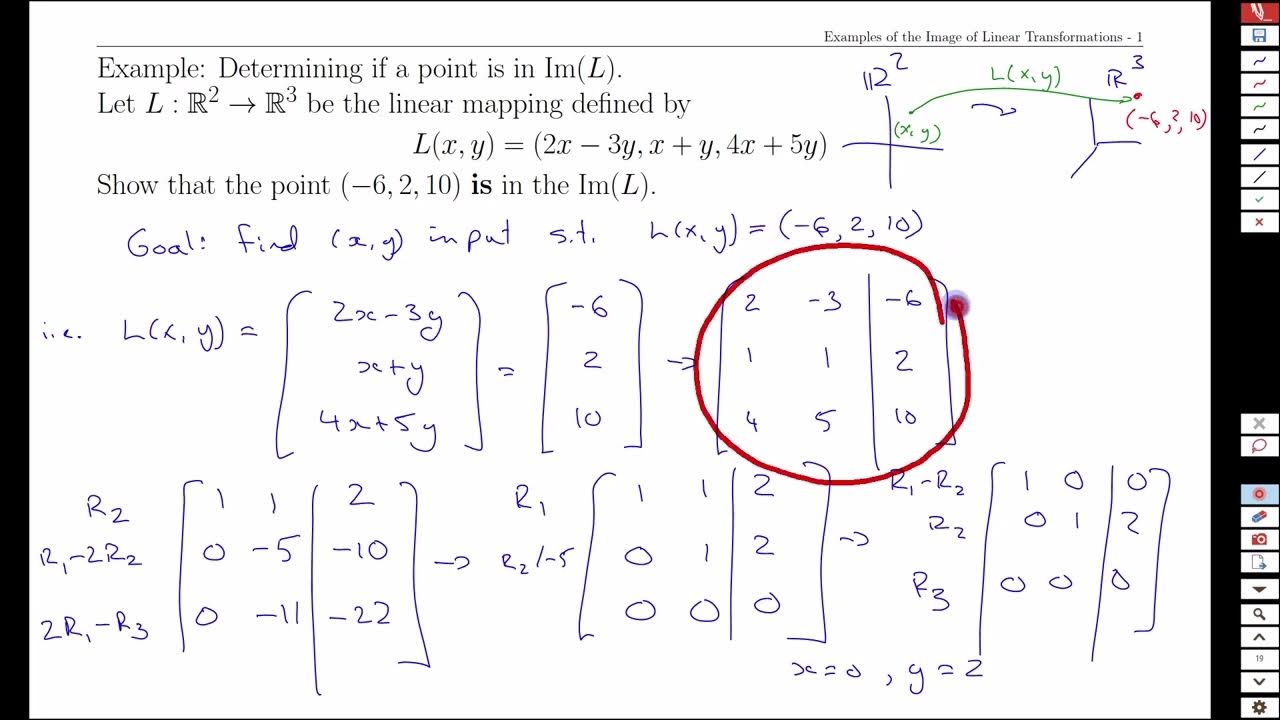 Examples of the Image of Linear Transformations - 1
Example: Determining if a point is in Im(L).
Let L : ℝ² → ℝ³ be the linear mapping defined by
L(x, y) = (2x − 3y, x + y, 4x + 5y)
Show that the point (−6, 2, 10) is in the Im(L).
ℝ² L(x,y) ℝ³
(x,y) (-6,2,10)
Goal: find (x,y) input s.t. L(x,y) = (-6, 2, 10)
i.e. L(x,y) = [2x-3y = [-6 → [2 -3 | -6
x+y 2 1 1 | 2
4x+5y] 10] 4 5 | 10]
R₂ [1 1 | 2 R₁ [1 1 | 2 R₁-R₂ [1 0 | 0
R₁-2R₂ 0 -5 | -10 → R₂/-5 0 1 | 2 → R₂ 0 1 | 2
2R₁-R₃ 0 -11 | -22] 0 0 | 0] R₃ 0 0 | 0]
x=0, y=2
19